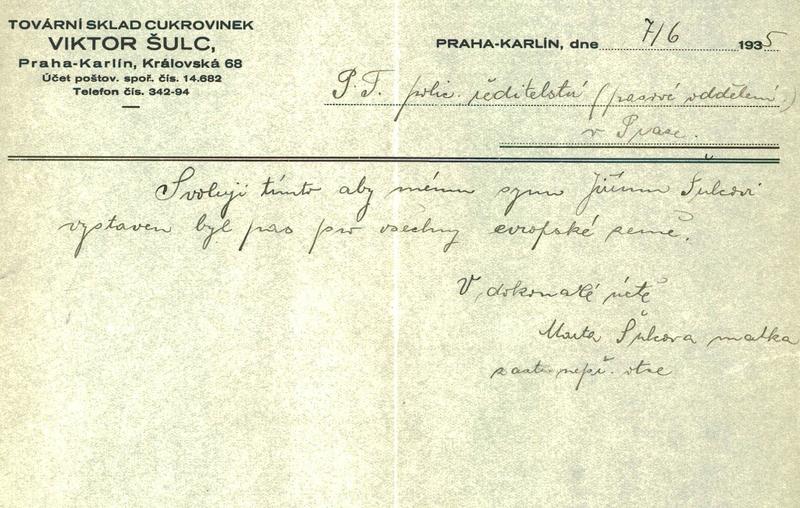 TOVÁRNÍ SKLAD CUKROVINEK
VIKTOR ŠULC,
Praha-Karlín, Královská 68
Účet poštov. spoř. čís. 14.682
Telefon čís. 342-94
PRAHA-KARLÍN, dne 7/6 1935
P. T. polic. ředitelství (pasové oddělení)
v Praze.
Svoluji tímto aby mému synu Jiřímu Šulcovi
vystaven byl pas pro všechny evropské země.
V dokonalé úctě
Marta Šulcova matka
zast. nepř. otce